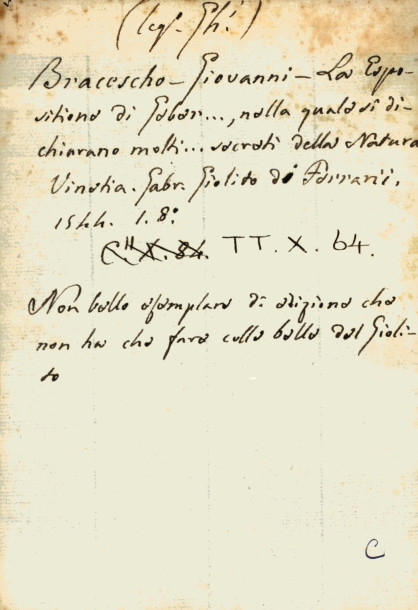 (leg. Ghi)
Bracescho - Giovanni - La Espo-
sitione di Geber..., nella quale si di-
chiarano molti... secreti della Natura
Vinetia. Gabr. Giolito di Ferrarii,
1544. 1. 8.°
TT. X. 64.
Non bello esemplare di edizione che
non ha che fare colle belle del Gioli-
to
C